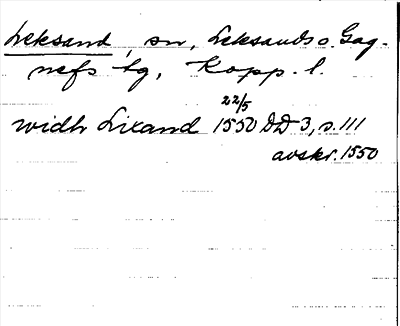 Leksand, sn, Leksands o. Gag-
nefs tg, Kopp. l.
widh Lixand 1550 22/5 DD 3, s. 111
avskr. 1550